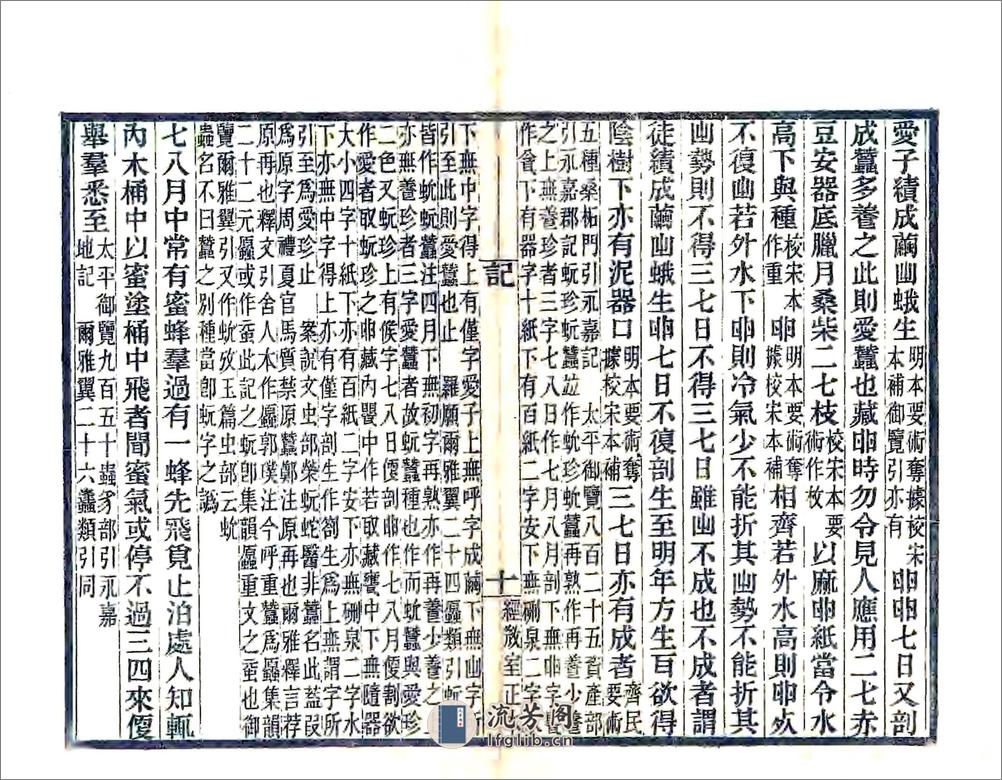 愛子績成繭幽蛾生明本要術奪據校宋本補御覽引亦有卵卵七日又剖
成蠶多養之此則愛蠶也藏卵時勿令見人應用二七赤
豆安器底臘月桑柴二七枝校宋本要術作枚以麻卵紙當令水
高下與種校宋本作重卵明本要術奪據校宋本補相齊若外水高則卵死
不復幽若外水下卵則冷氣少不能折其幽勢不能折其
幽勢則不得三七日不得三七日雖幽不成也不成者謂
徒績成繭幽蛾生卵七日不復剖生至明年方生百欲得
陰樹下亦有泥器口明本要術奪據校宋本補三七日亦有成者齊民要術
五種桑柘門引永嘉記　太平御覽八百二十五資產部
引永嘉郡記蚖珍蚖蠶竝作蚖珍蚖蠶再熟作再養少養
之上無養珍者三字七八日作七月八日剖下無卵字
作甕下有器字十紙下有百紙二字安下無硎泉二字
記
十
經微室正
下無中字得上有僅字愛子上無呼字成繭下無幽字所
引至此則愛蠶也止　羅願爾雅翼二十四䖸類引蚖
皆作蚖蚖蠶注四月下無初字再熟亦作再養少養之
亦無養珍者三字愛蠶者故蚖蠶種也作而蚖蠶與愛珍
二色又蚖珍上有候字七八日便剖卵作七八月便割欲
作愛者取蚖珍之卵藏內甖中作若取藏甕中下無隨器
大小四字十紙下亦有百紙二字安下亦無硎泉二字水
下亦無中字得上亦有僅字剖生作劄生爲上無謂字所
引至爲愛珍止　案說文虫部榮蚖蛇醫非蠶名此葢叚
爲原字周禮夏官馬質禁原蠶鄭注原再也爾雅釋言荐
原再也釋文引舍人本作䖸郭璞注今呼重蠶爲䖸集韻
二十二元䖸或作䖤此記之蚖卽集韻䖸重文之䖤也御
覽爾雅翼引又作蚢攷玉篇虫部云蚢
蟲名不曰蠶之別種當卽蚖字之譌
七八月中常有蜜蜂羣過有一蜂先飛覓止泊處人知輒
內木桶中以蜜塗桶中飛者聞蜜氣或停不過三四來便
舉羣悉至太平御覽九百五十蟲豸部引永嘉地記　爾雅翼二十六蠭類引同
流芳閣
lfglib.cn